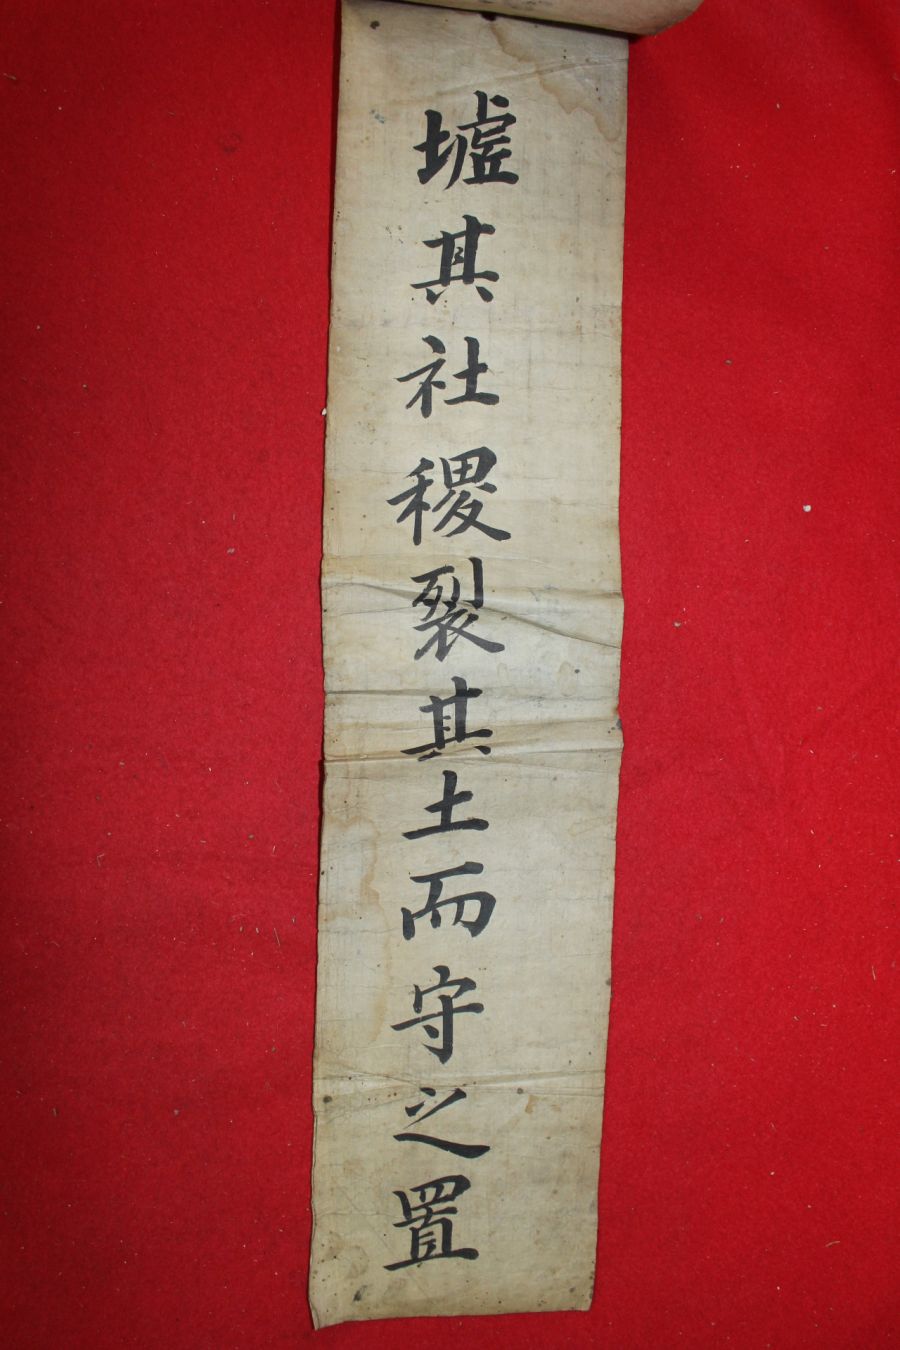 墟其社稷裂其土而守之置